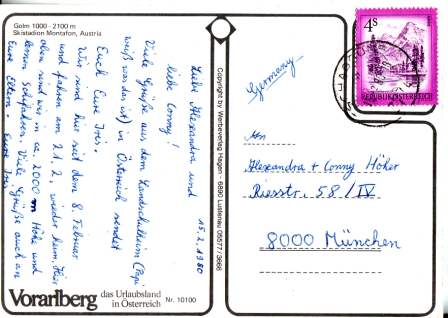 Golm 1000 - 2100 m
Skistadion Montafon, Austria
15.2.1980
Liebe Alexandra und
liebe Conny!
Viele Grüße aus dem Landschulheim (Papi
weiß was das ist) in Österreich sendet
Euch Eure Iris.
Wir sind hier seit dem 8. Februar
und fahren am 21.2. wieder heim. Hier
oben sind wir in ca. 2000 m Höhe und
lernen Schifahren. Viele Grüße auch an
Eure Eltern. Eure Iris
Vorarlberg das Urlaubsland
in Österreich Nr. 10100
Copyright by Werbeverlag Hagen - 6890 Lustenau 05577/3666
Germany
4 S
REPUBLIK ÖSTERREICH
An
Alexandra + Conny Höker
Riesstr. 58/IV
8000 München